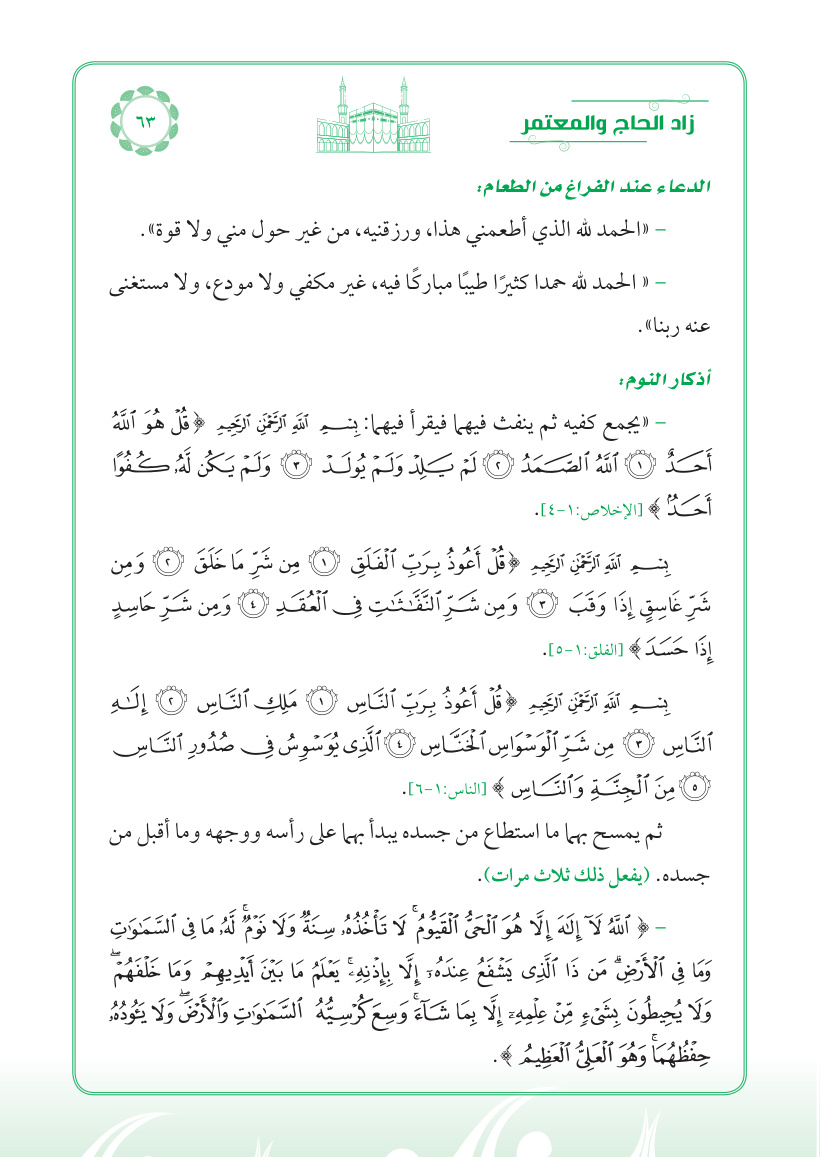 زاد الحاج والمعتمر
٦٣
الدعاء عند الفراغ من الطعام:
– «الحمد لله الذي أطعمني هذا، ورزقنيه، من غير حول مني ولا قوة».
– « الحمد لله حمدا كثيرًا طيبًا مباركًا فيه، غير مكفي ولا مودع، ولا مستغنى
عنه ربنا».
أذكار النوم:
– «يجمع كفيه ثم ينفث فيهما فيقرأ فيهما: بِسْمِ ٱللَّهِ ٱلرَّحْمَٰنِ ٱلرَّحِيمِ ﴿ قُلْ هُوَ ٱللَّهُ
أَحَدٌ ١ ٱللَّهُ ٱلصَّمَدُ ٢ لَمْ يَلِدْ وَلَمْ يُولَدْ ٣ وَلَمْ يَكُن لَّهُۥ كُفُوًا
أَحَدٌۢ ﴾ [الإخلاص:١-٤].
بِسْمِ ٱللَّهِ ٱلرَّحْمَٰنِ ٱلرَّحِيمِ ﴿ قُلْ أَعُوذُ بِرَبِّ ٱلْفَلَقِ ١ مِن شَرِّ مَا خَلَقَ ٢ وَمِن
شَرِّ غَاسِقٍ إِذَا وَقَبَ ٣ وَمِن شَرِّ ٱلنَّفَّٰثَٰتِ فِى ٱلْعُقَدِ ٤ وَمِن شَرِّ حَاسِدٍ
إِذَا حَسَدَ ﴾ [الفلق:١-٥].
بِسْمِ ٱللَّهِ ٱلرَّحْمَٰنِ ٱلرَّحِيمِ ﴿ قُلْ أَعُوذُ بِرَبِّ ٱلنَّاسِ ١ مَلِكِ ٱلنَّاسِ ٢ إِلَٰهِ
ٱلنَّاسِ ٣ مِن شَرِّ ٱلْوَسْوَاسِ ٱلْخَنَّاسِ ٤ ٱلَّذِى يُوَسْوِسُ فِى صُدُورِ ٱلنَّاسِ
٥ مِنَ ٱلْجِنَّةِ وَٱلنَّاسِ ﴾ [الناس:١-٦].
ثم يمسح بهما ما استطاع من جسده يبدأ بهما على رأسه ووجهه وما أقبل من
جسده. (يفعل ذلك ثلاث مرات).
– ﴿ ٱللَّهُ لَآ إِلَٰهَ إِلَّا هُوَ ٱلْحَىُّ ٱلْقَيُّومُ ۚ لَا تَأْخُذُهُۥ سِنَةٌ وَلَا نَوْمٌ ۚ لَّهُۥ مَا فِى ٱلسَّمَٰوَٰتِ
وَمَا فِى ٱلْأَرْضِ ۗ مَن ذَا ٱلَّذِى يَشْفَعُ عِندَهُۥٓ إِلَّا بِإِذْنِهِۦ ۚ يَعْلَمُ مَا بَيْنَ أَيْدِيهِمْ وَمَا خَلْفَهُمْ ۖ
وَلَا يُحِيطُونَ بِشَىْءٍ مِّنْ عِلْمِهِۦٓ إِلَّا بِمَا شَآءَ ۚ وَسِعَ كُرْسِيُّهُ ٱلسَّمَٰوَٰتِ وَٱلْأَرْضَ ۖ وَلَا يَـُٔودُهُۥ
حِفْظُهُمَا ۚ وَهُوَ ٱلْعَلِىُّ ٱلْعَظِيمُ ﴾.